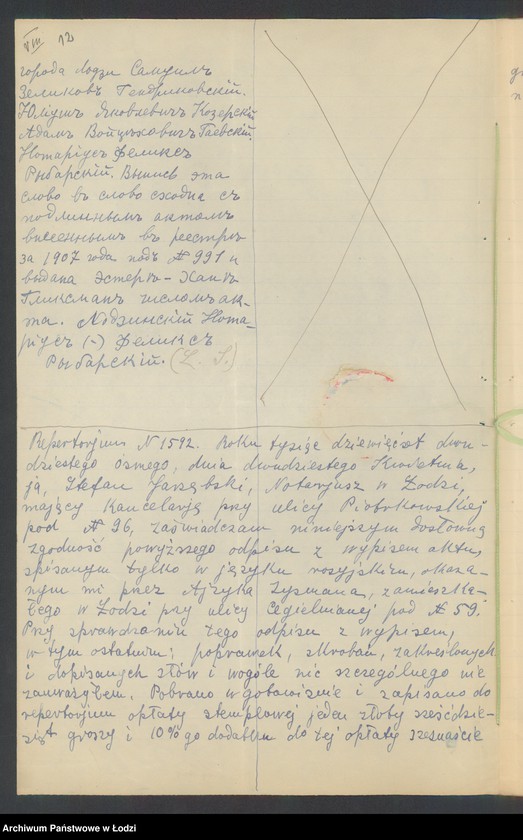 VIII 12
города Лодзи Самуилъ
Зеликовъ Гендриковскій.
Юліушъ Яковлевичъ Козерскій
Адамъ Войцѣховичъ Гаевскій.
Нотаріусъ Феликсъ
Рыбарскій. Выпись эта
слово въ слово сходна съ
подлиннымъ актомъ
внесеннымъ въ реестръ
за 1907 годъ подъ № 991 и
выдана Эстеръ-Ханѣ
Гликсманъ числомъ ак-
та. Лодзинскій Нота-
ріусъ (-) Феликсъ
Рыбарскій. (L. S.)
Repertorjum N 1592. Roku tysiąc dziewięćset dwu-
dziestego ósmego, dnia dwudziestego Kwietnia,
ja, Stefan Jarzębski, Notarjusz w Łodzi,
mający Kancelarję przy ulicy Piotrkowskiej
pod № 96, zaświadczam niniejszym dosłowną
zgodność powyższego odpisu z wypisem aktu,
spisanym tylko w języku rosyjskim, okaza-
nym mi przez Ajzyka Zysmana, zamieszka-
łego w Łodzi przy ulicy Cegielnianej pod № 59.
Przy sprawdzaniu tego odpisu z wypisem,
w tym ostatnim; poprawek, skrobań, zakreślonych
i dopisanych słów i wogóle nic szczególnego nie
zauważyłem. Pobrano w gotowiźnie i zapisano do
repertorjum opłaty stemplowej jeden złoty sześćdzie-
siąt groszy i 10% go dodatku do tej opłaty szesnaście
Archiwum Państwowe w Łodzi